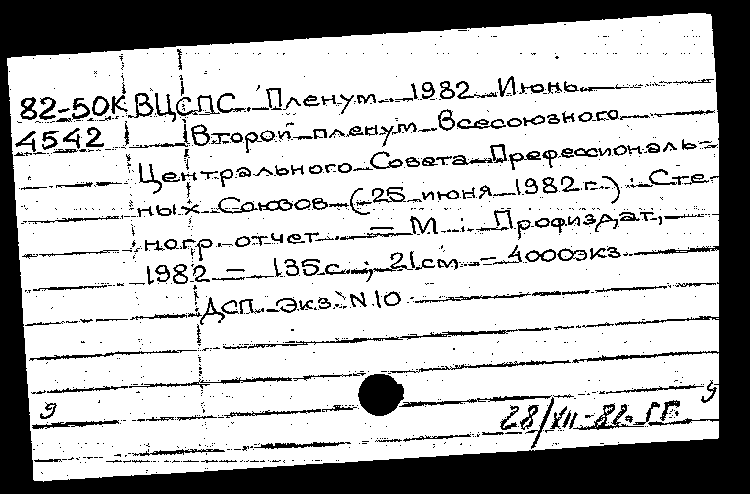 82-50К ВЦСПС. Пленум. 1982. Июнь.
4542 Второй пленум Всесоюзного
Центрального Совета Префессиональ-
ных Союзов (25 июня 1982г.): Сте-
ногр. отчет. – М.: Профиздат,
1982 – 135с.; 21см – 4000экз
ДСП. Экз. N 10
9 9
28/XII-82. ГГ.